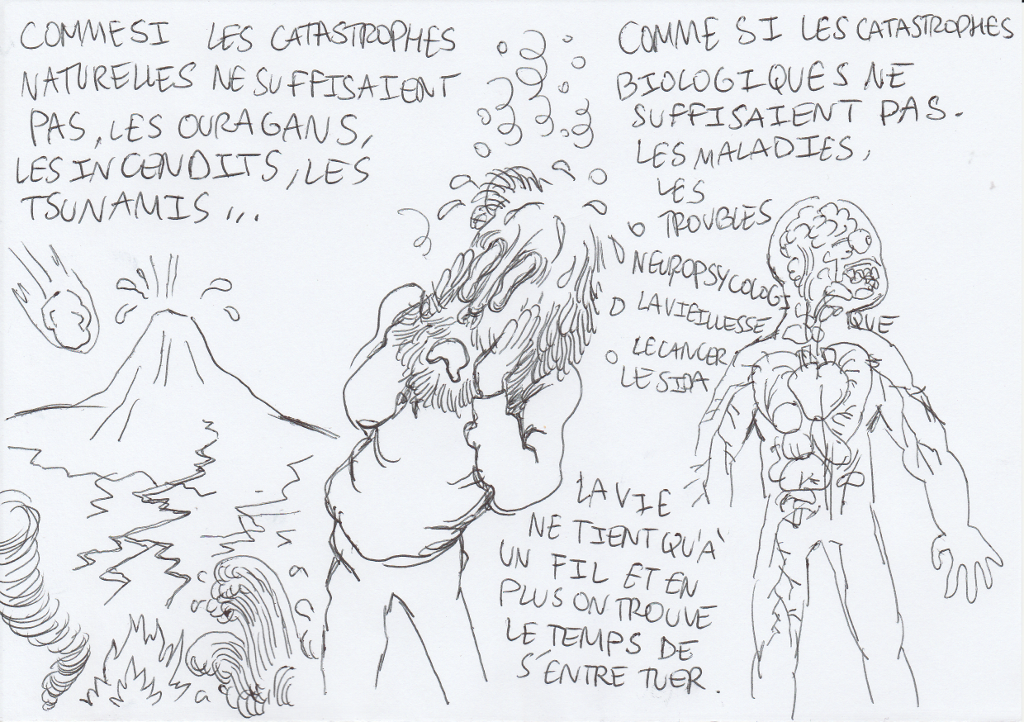 COMME SI LES CATASTROPHES
NATURELLES NE SUFFISAIENT
PAS, LES OURAGANS,
LES INCENDITS, LES
TSUNAMIS ...
COMME SI LES CATASTROPHES
BIOLOGIQUES NE
SUFFISAIENT PAS.
LES MALADIES,
LES
TROUBLES
NEUROPSYCOLOGI
QUE
LA VIEILLESSE
LE CANCER
LE SIDA
LA VIE
NE TIENT QU'A
UN FIL ET EN
PLUS ON TROUVE
LE TEMPS DE
S'ENTRE TUER.